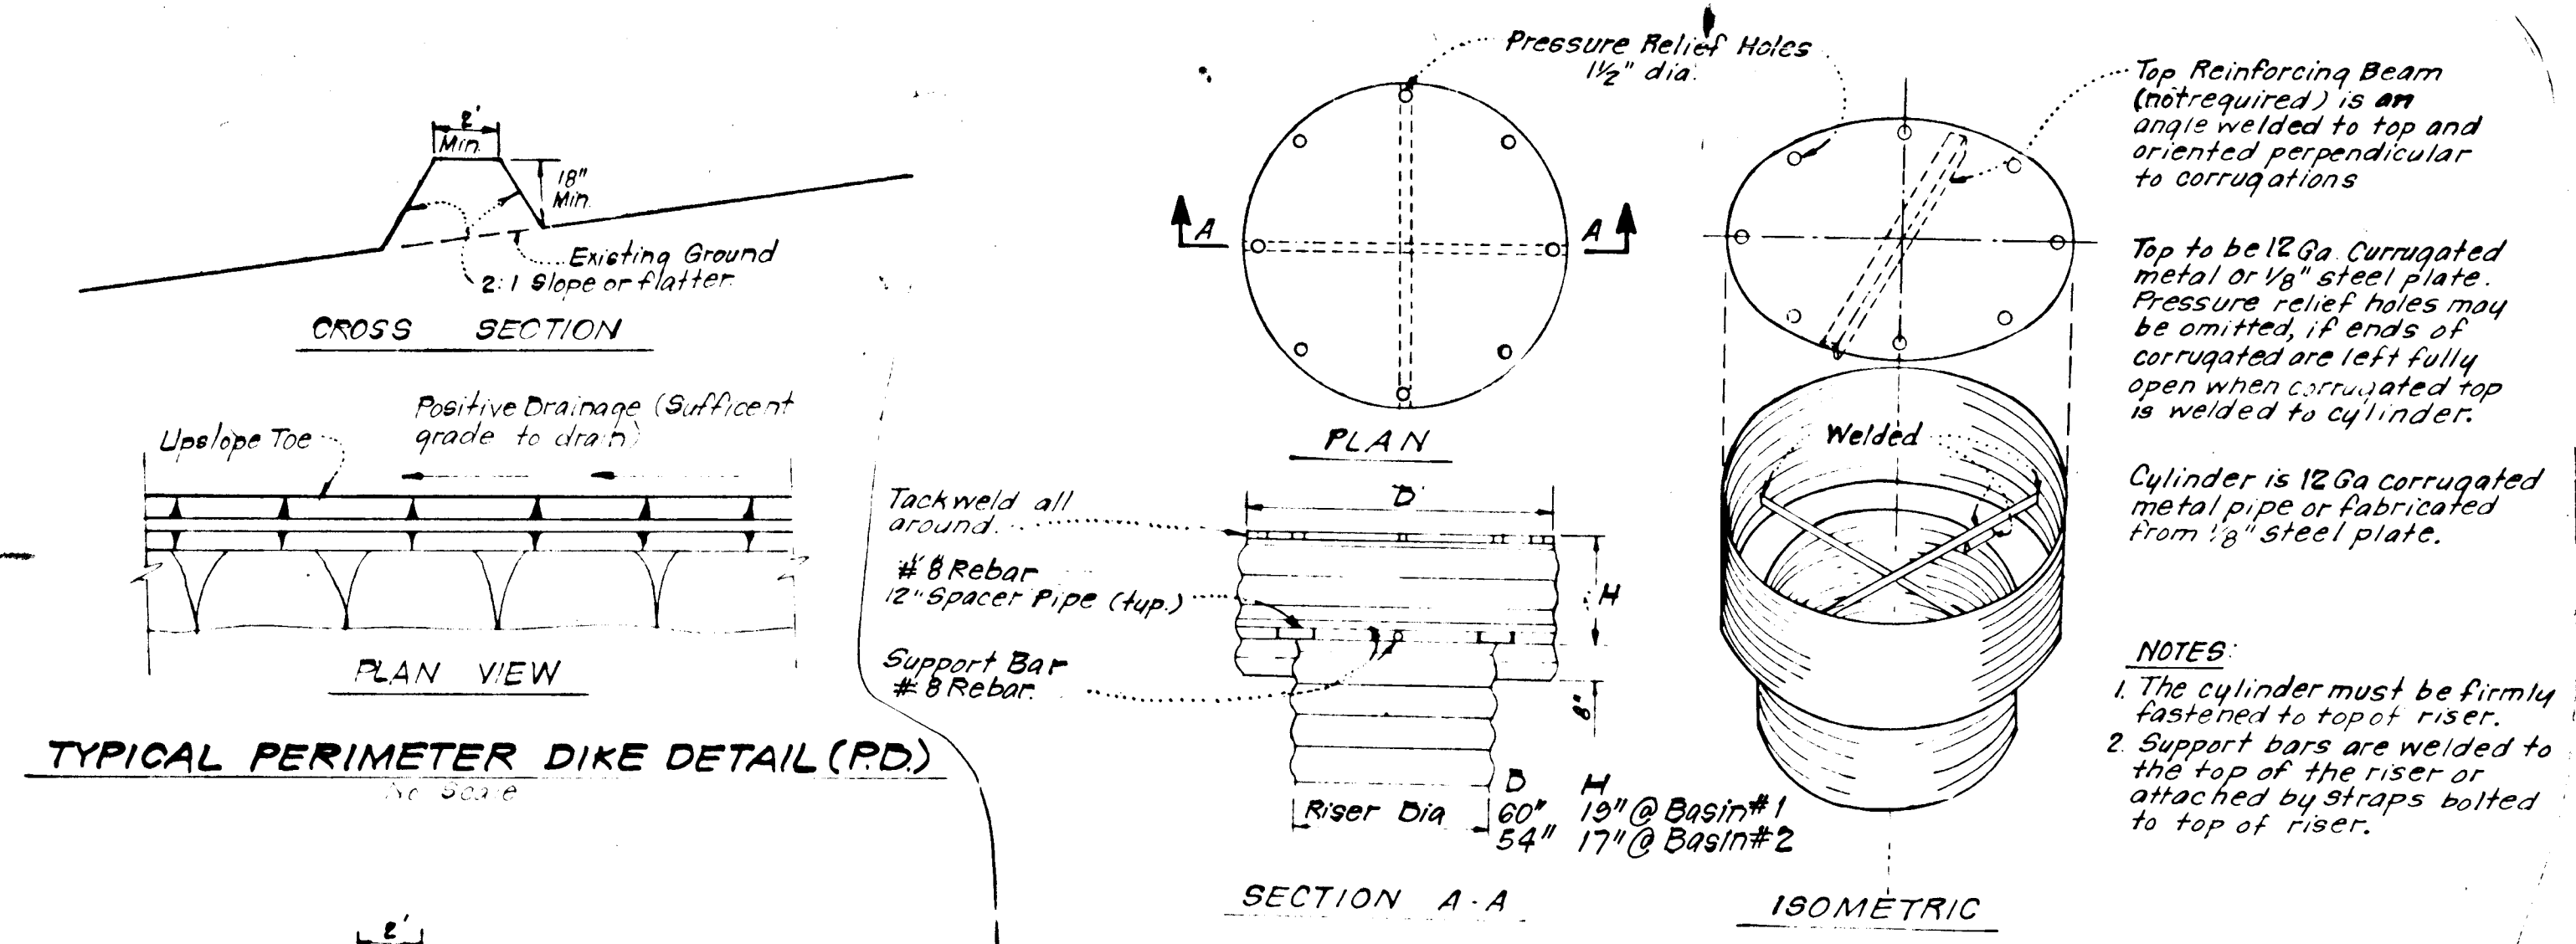 2'
Min.
18"
Min.
Existing Ground
2:1 Slope or flatter.
CROSS SECTION
Positive Drainage (Sufficent
grade to drain)
Upslope Toe
PLAN VIEW
TYPICAL PERIMETER DIKE DETAIL (P.D.)
No Scale
2'
Pressure Relief Holes
1½" dia.
A
A
PLAN
Tack weld all
around.
#8 Rebar
12" Spacer Pipe (typ.)
Support Bar
#8 Rebar.
D
H
8"
Riser Dia
D H
60" 19" @ Basin #1
54" 17" @ Basin #2
SECTION A-A
Top Reinforcing Beam
(not required) is an
angle welded to top and
oriented perpendicular
to corrugations
Top to be 12 Ga. Currugated
metal or 1/8" steel plate.
Pressure relief holes may
be omitted, if ends of
corrugated are left fully
open when corrugated top
is welded to cylinder.
Welded
Cylinder is 12 Ga corrugated
metal pipe or fabricated
from 1/8" steel plate.
NOTES:
1. The cylinder must be firmly
fastened to top of riser.
2. Support bars are welded to
the top of the riser or
attached by straps bolted
to top of riser.
ISOMETRIC